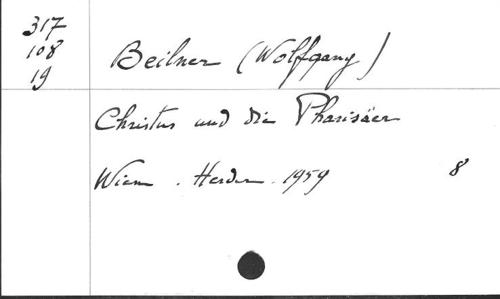 317
108
19
Beilner (Wolfgang)
Christus und die Pharisäer
Wien . Herder . 1959 8